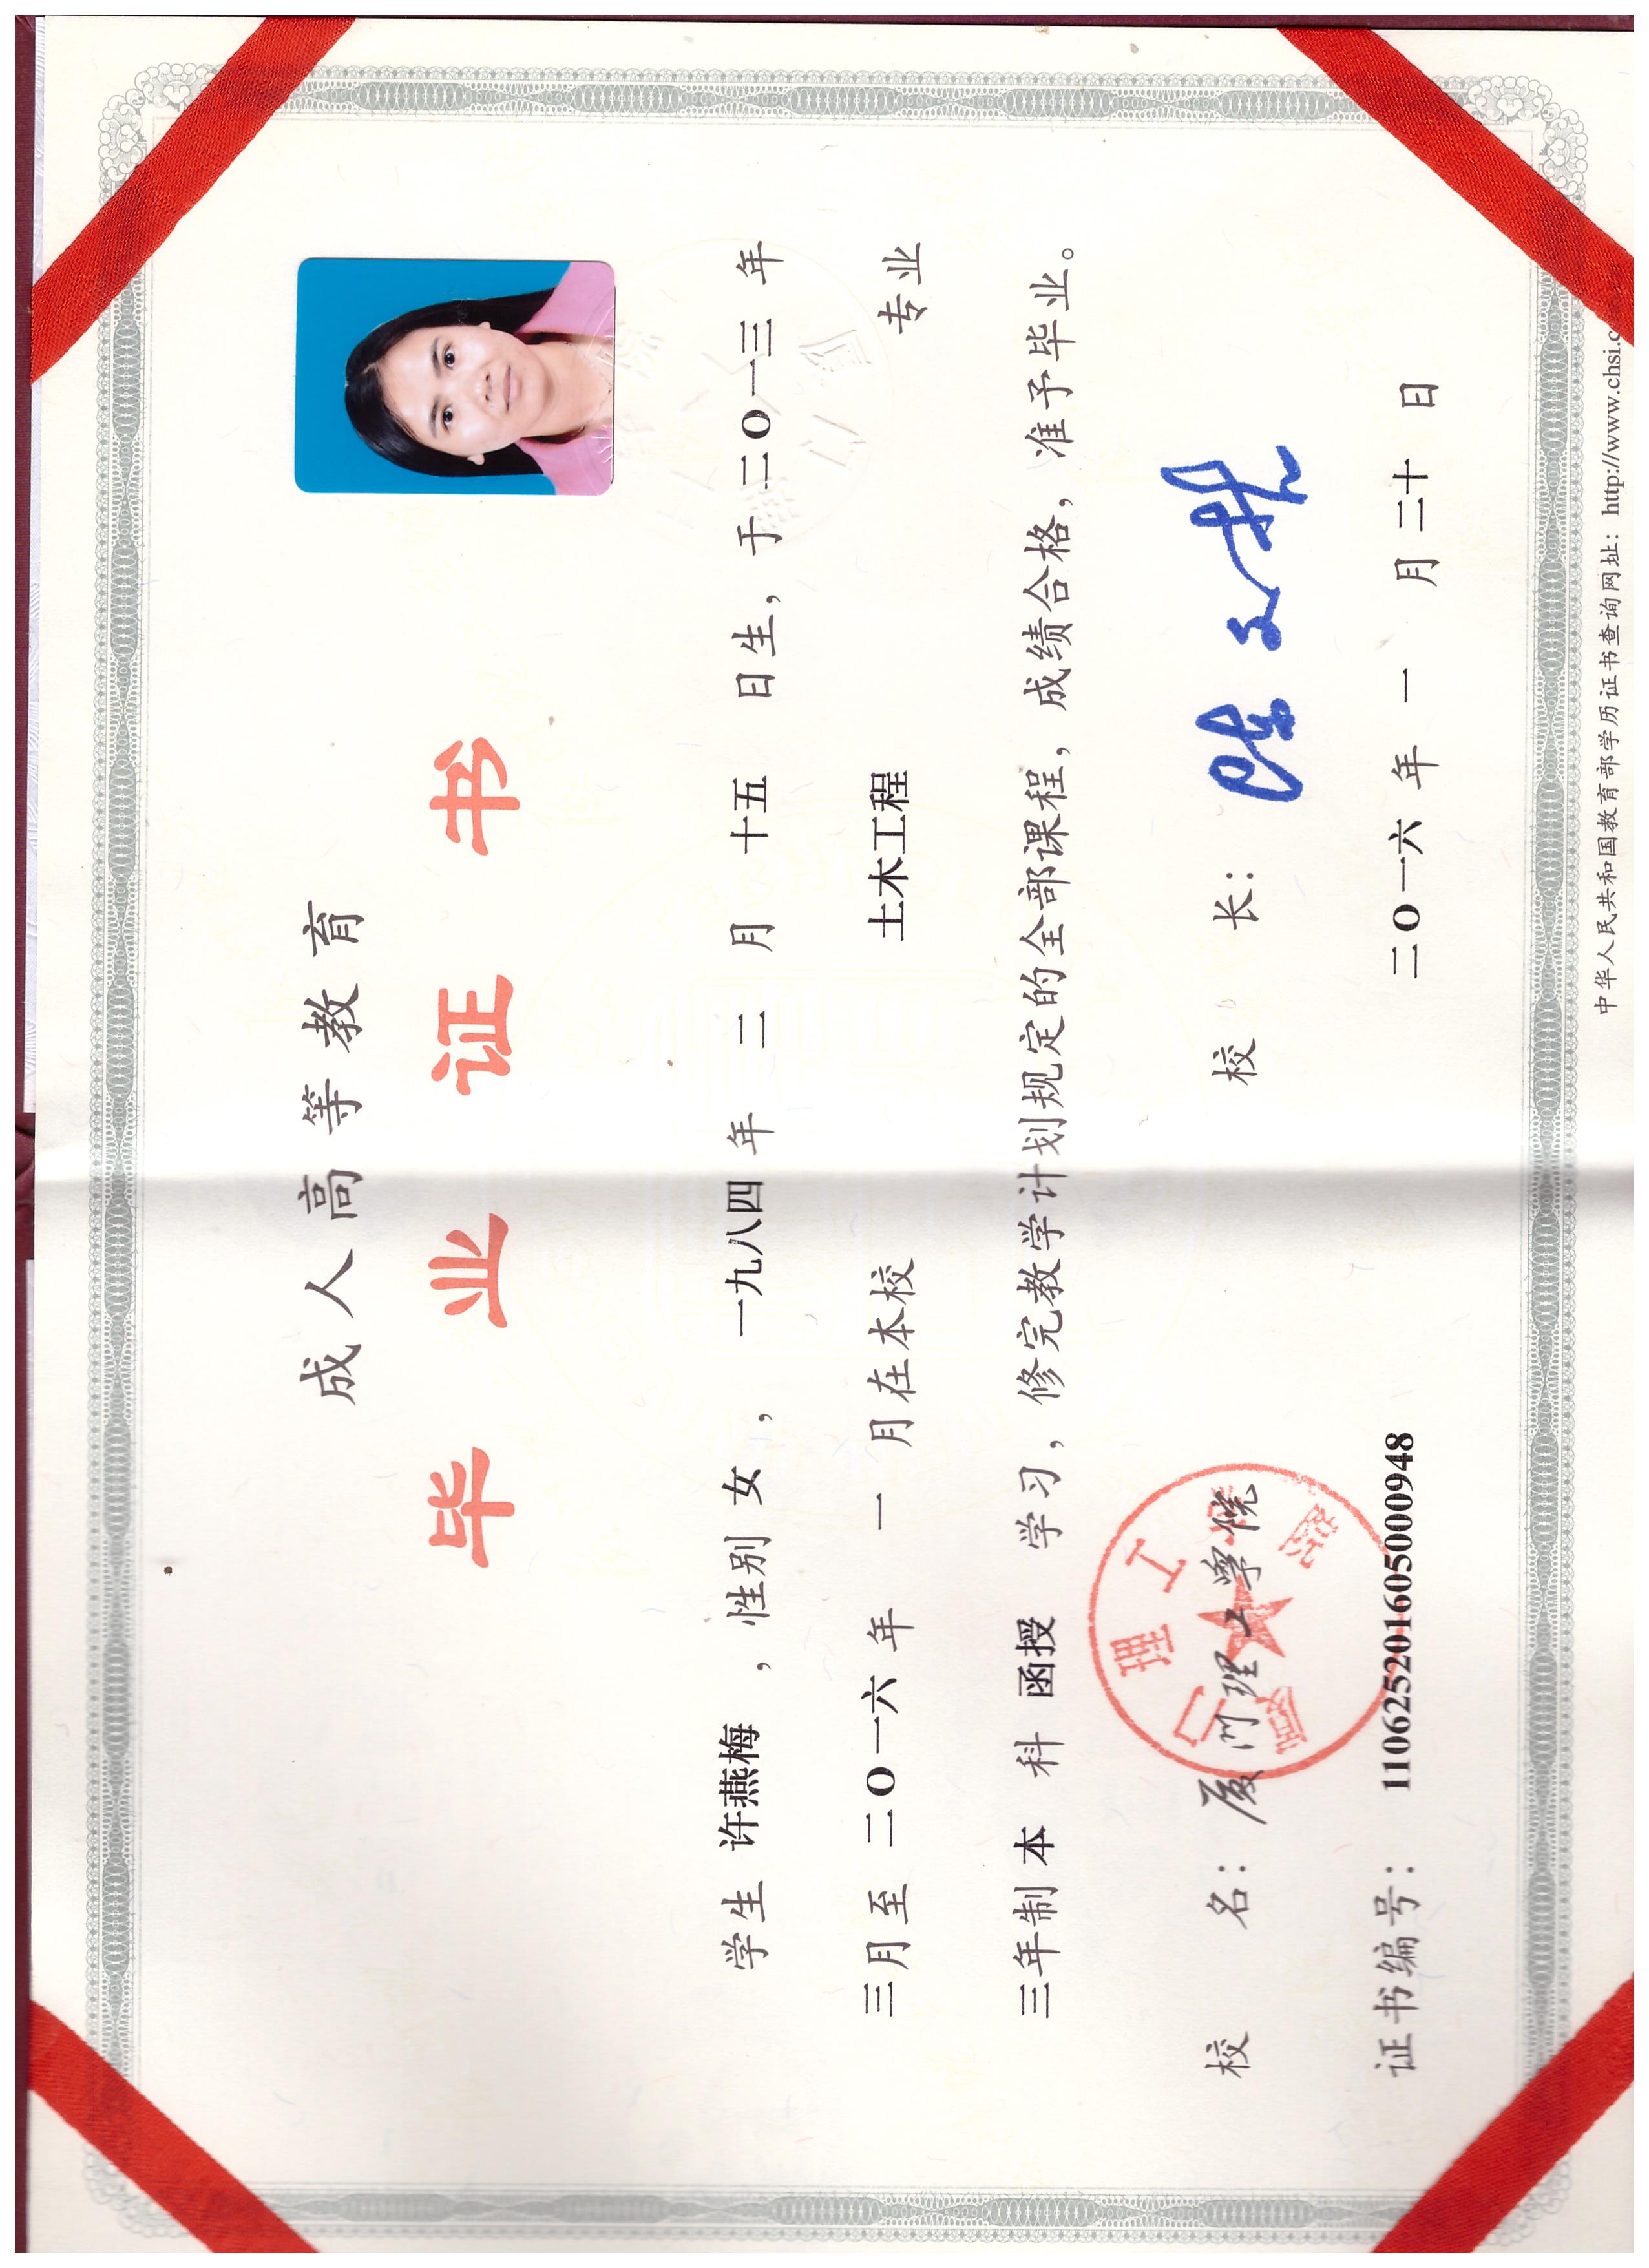 成人高等教育
毕业证书
学生 许燕梅 ，性别 女 ， 一九八四 年 二 月 十五 日生，于二〇一三 年
三月至 二〇一六 年 一 月在本校 土木工程 专业
三年制 本 科 函授 学习，修完教学计划规定的全部课程，成绩合格，准予毕业。
校 名：厦门理工学院 校 长：
厦门理工学院
证书编号：110625201605000948 二〇一六 年 一 月 二十 日
中华人民共和国教育部学历证书查询网址：http://www.chsi.c